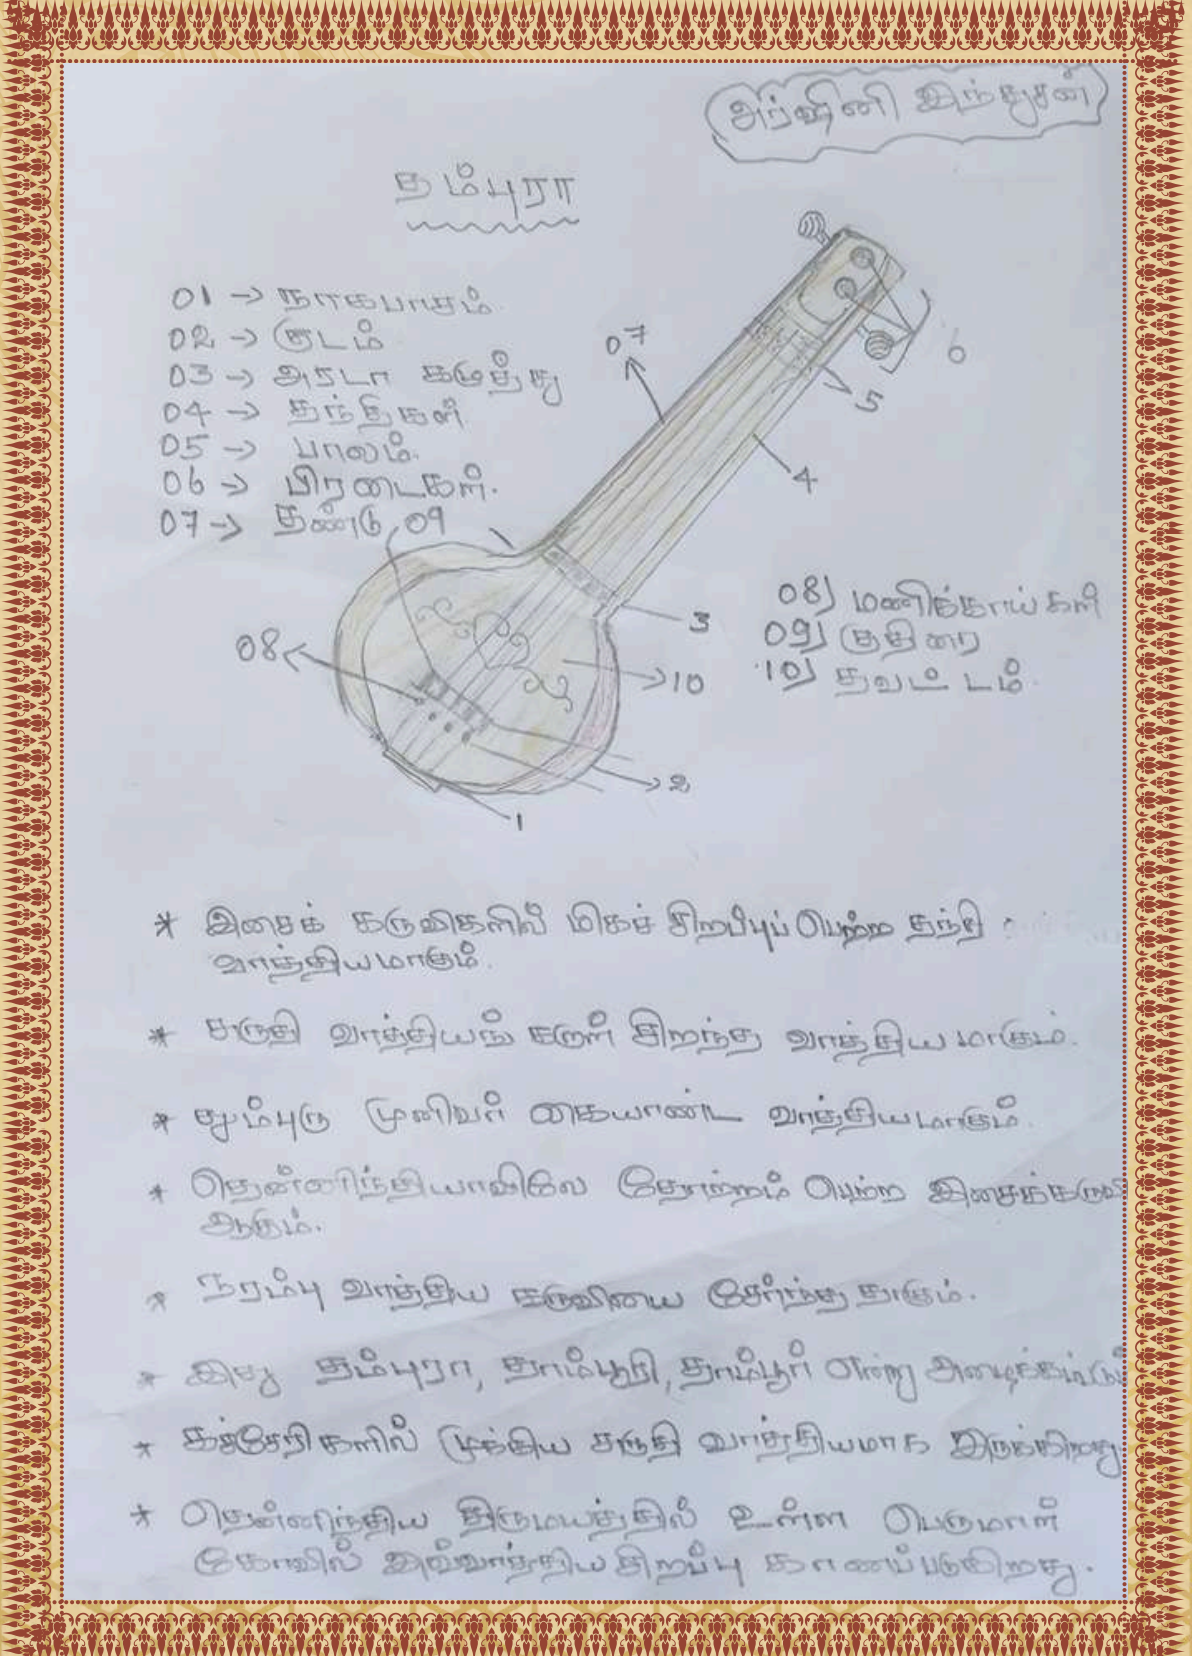 அர்ஷினி இந்துசன்
தம்புரா
01 → நாகபாசம்.
02 → குடம்
03 → அரடா கழுத்து
04 → தந்திகள்
05 → பாலம்.
06 → பிரடைகள்.
07 → தண்டு
09
07
6
5
4
3
08
10
2
1
08) மணிக்காய்கள்
09) குதிரை
10) தவட்டம்.
* இசைக் கருவிகளில் மிகச் சிறப்புப் பெற்ற தந்தி
வாத்தியமாகும்.
* சுருதி வாத்தியங்களுள் சிறந்த வாத்தியமாகும்.
* தும்புரு முனிவர் கையாண்ட வாத்தியமாகும்.
* தென்னிந்தியாவிலே தோற்றம் பெற்ற இசைக்கருவி
ஆகும்.
* நரம்பு வாத்திய கருவியை சேர்ந்த தாகும்.
* இது தம்புரா, தாம்பூரி, தாம்பூர் என்று அழைக்கப்படும்
* கச்சேரிகளில் முக்கிய சுருதி வாத்தியமாக இருக்கிறது
* தென்னிந்திய திருமயத்தில் உள்ள பெருமாள்
கோவில் இவ்வாத்திய சிறப்பு காணப்படுகிறது.